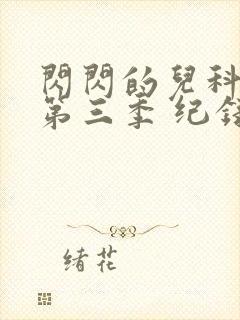 閃閃的兒科
第三季 纪
绪花